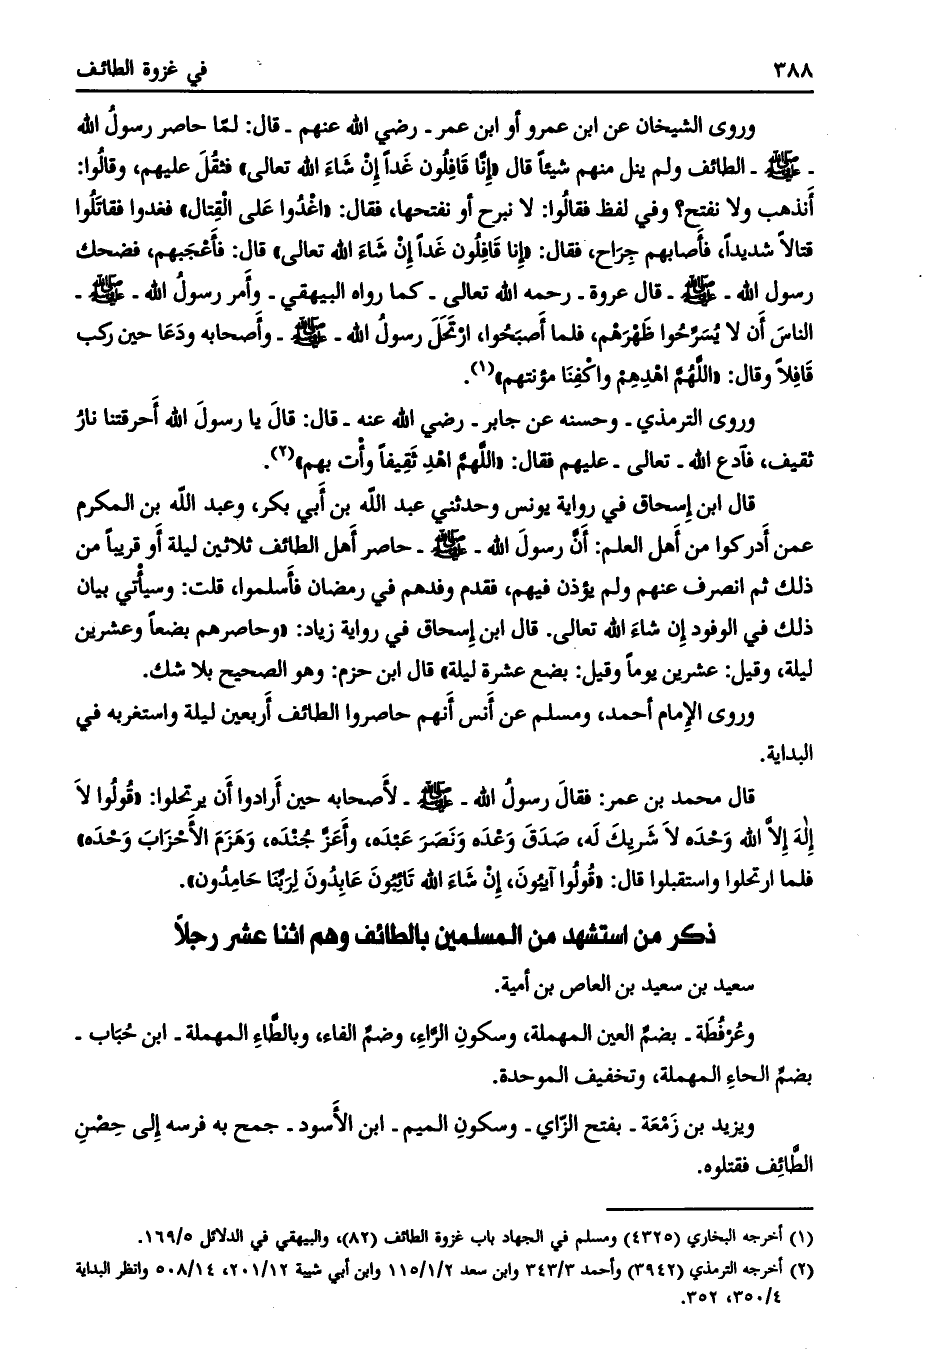 ٣٨٨ في غزوة الطائف
وروى الشيخان عن ابن عمرو أو ابن عمر ـ رضي الله عنهم ـ قال: لمّا حاصر رسولُ الله
ـ ﷺ ـ الطائف ولم ينل منهم شيئاً قال «إِنَّا قَافِلُون غَداً إِنْ شَاءَ الله تعالى» فثقُلَ عليهم، وقالُوا:
أَنذهب ولا نفتح؟ وفي لفظ فقالُوا: لا نبرح أو نفتحها، فقال: «اغْدُوا عَلى الْقِتال» فغدوا فقاتَلُوا
قتالاً شديداً، فأَصابهم جِرَاح، فقال: «إِنا قَافِلُون غَداً إِنْ شَاءَ الله تعالى» قال: فأَعْجَبهم، فضحك
رسول الله ـ ﷺ ـ قال عروة ـ رحمه الله تعالى ـ كما رواه البيهقي ـ وأَمر رسولُ الله ـ ﷺ ـ
الناسَ أَن لا يُسَرِّحُوا ظَهْرَهْم، فلما أَصبَحُوا، ارْتَحَلَ رسولُ الله ـ ﷺ ـ وأَصحابه ودَعَا حين ركب
قَافِلاً وقال: «اللَّهُمَّ اهْدِهِمْ واكْفِنَا مؤنتهم»(١).
وروى الترمذي ـ وحسنه عن جابر ـ رضي الله عنه ـ قال: قالَ يا رسولَ الله أَحرقتنا نارُ
ثقيف، فآدع الله ـ تعالى ـ عليهم فقال: «اللَّهمَّ اهْدِ ثَقِيفاً وأْت بهم»(٢).
قال ابن إِسحاق في رواية يونس وحدثني عبد اللَّه بن أَبي بكر، وعبد اللَّه بن المكرم
عمن أَدركوا من أَهل العلم: أَنَّ رسولَ الله ـ ﷺ ـ حاصر أَهل الطائف ثلاثين ليلة أَو قريباً من
ذلك ثم انصرف عنهم ولم يؤذن فيهم، فقدم وفدهم في رمضان فأَسلموا، قلت: وسيأْتي بيان
ذلك في الوفود إِن شاءَ الله تعالى. قال ابن إِسحاق في رواية زياد: «وحاصرهم بضعاً وعشرين
ليلة، وقيل: عشرين يوماً وقيل: بضع عشرة ليلة» قال ابن حزم: وهو الصحيح بلا شك.
وروى الإِمام أحمد، ومسلم عن أَنس أَنهم حاصروا الطائف أَربعين ليلة واستغربه في
البداية.
قال محمد بن عمر: فقالَ رسولُ الله ـ ﷺ ـ لأَصحابه حين أَرادوا أَن يرتحلوا: «قُولُوا لاَ
إِلٰهَ إِلاَّ الله وَحْدَه لاَ شَرِيكَ لَه، صَدَقَ وَعْدَه وَنَصَرَ عَبْدَه، وأَعَزَّ جُنْدَه، وَهَزَمَ الأَحْزَابَ وَحْدَه»
فلما ارتحلوا واستقبلوا قال: «قُولُوا آيِبُونَ، إِنْ شَاءَ الله تَائِبُونَ عَابِدُونَ لِرَبِّنَا حَامِدُون».
ذكر من استشهد من المسلمين بالطائف وهم اثنا عشر رجلاً
سعيد بن سعيد بن العاص بن أُمية.
وعُرْفُطَة ـ بضمِّ العين المهملة، وسكونِ الرَّاءِ، وضمِّ الفاء، وبالطَّاءِ المهملة ـ ابن حُبَاب ـ
بضمِّ الحاءِ المهملة، وتخفيف الموحدة.
ويزيد بن زَمْعَة ـ بفتح الزّاي ـ وسكونِ الميم ـ ابن الأَسود ـ جمح به فرسه إِلى حِصْنِ
الطَّائِف فقتلوه.
(١) أخرجه البخاري (٤٣٢٥) ومسلم في الجهاد باب غزوة الطائف (٨٢)، والبيهقي في الدلائل ١٦٩/٥.
(٢) أخرجه الترمذي (٣٩٤٢) وأحمد ٣٤٣/٣ وابن سعد ١١٥/١/٢ وابن أبي شيبة ٢٠١/١٢، ٥٠٨/١٤ وانظر البداية
٣٥٠/٤، ٣٥٢.